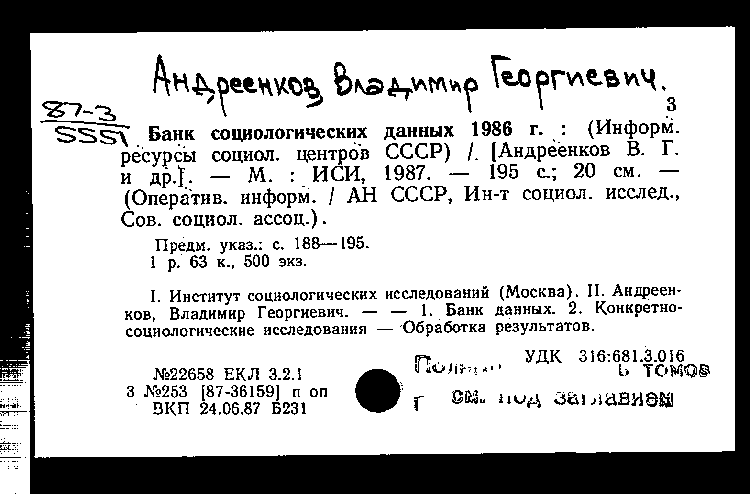 Андреенков Владимир Георгиевич.
3
87-3
5551
Банк социологических данных 1986 г. : (Информ.
ресурсы социол. центров СССР) / [Андреенков В. Г.
и др.]. — М. : ИСИ, 1987. — 195 с.; 20 см. —
(Оператив. информ. / АН СССР, Ин-т социол. исслед.,
Сов. социол. ассоц.).
Предм. указ.: с. 188—195.
1 р. 63 к., 500 экз.
I. Институт социологических исследований (Москва). II. Андреен-
ков, Владимир Георгиевич. — — 1. Банк данных. 2. Конкретно-
социологические исследования — Обработка результатов.
УДК 316:681.3.016
№22658 ЕКЛ 3.2.1
томов
3 №253 [87-36159] п оп
см. под заглавием
ВКП 24.06.87 Б231